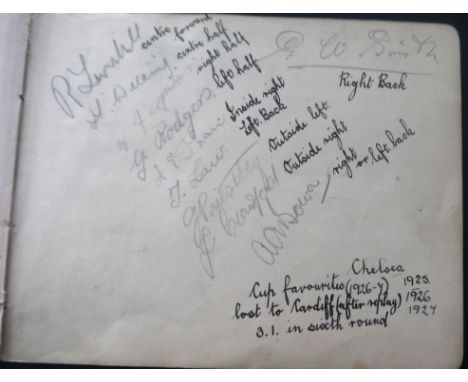 R Turnbull centre forward
H. Dearing centre half
J Ferguson right half
G Rodgers left half
Inside right
T. Law. Left Back
G Pearson Outside left.
J Crawford Outside right
A G Bower right or left back
G W Smith
Right Back
Chelsea
Cup favourites (1926-7) 1925.
lost to Cardiff (after replay) 1926
3.1. in sixth round 1927